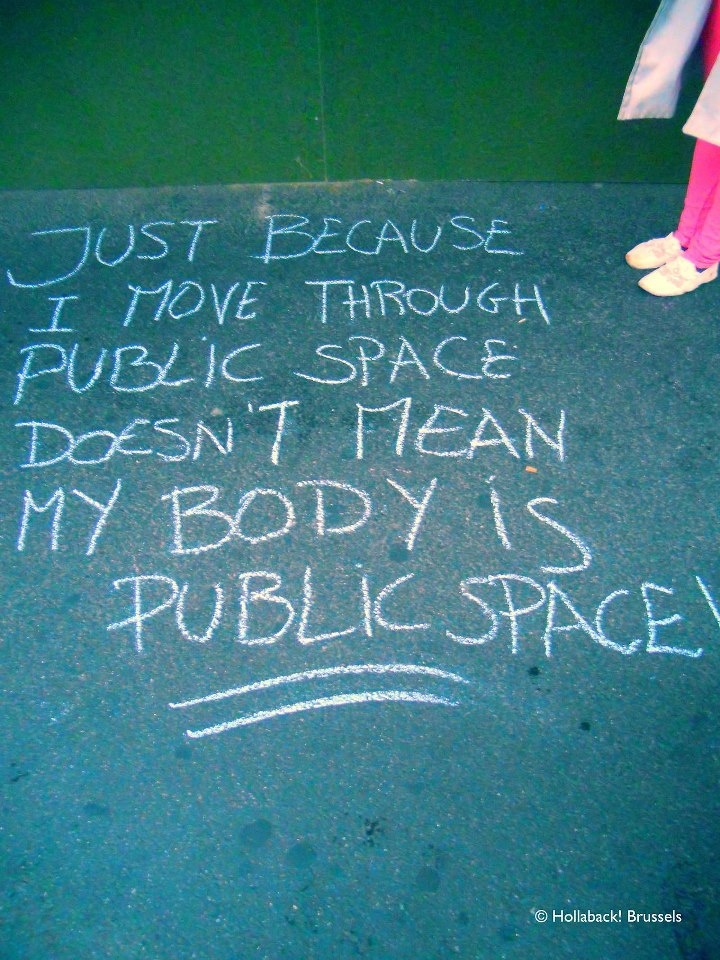 JUST BECAUSE
I MOVE THROUGH
PUBLIC SPACE
DOESN'T MEAN
MY BODY IS
PUBLIC SPACE!
© Hollaback! Brussels